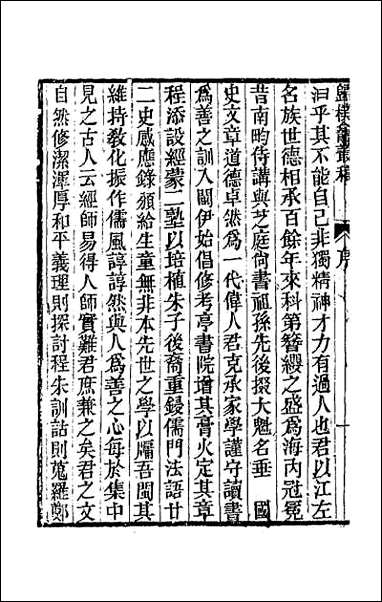 歸樸龕叢稿 序
汩乎其不能自己非獨精神才力有過人也君以江左
名族世德相承百餘年來科第簪纓之盛為海內冠冕
昔南畇侍講與芝庭尚書祖孫先後掇大魁名垂 國
史文章道德卓然為一代偉人君克承家學謹守讀書
為善之訓入閩伊始倡修考亭書院增其膏火定其章
程添設經蒙二塾以培植朱子後裔重鋟儒門法語廿
二史感應錄頒給生童無非本先世之學以牖吾閩其
維持敎化振作儒風諄諄然與人為善之心每於集中
見之古人云經師易得人師實難君庶兼之矣君之文
自然修潔渾厚和平義理則探討程朱訓詁則蒐羅鄭